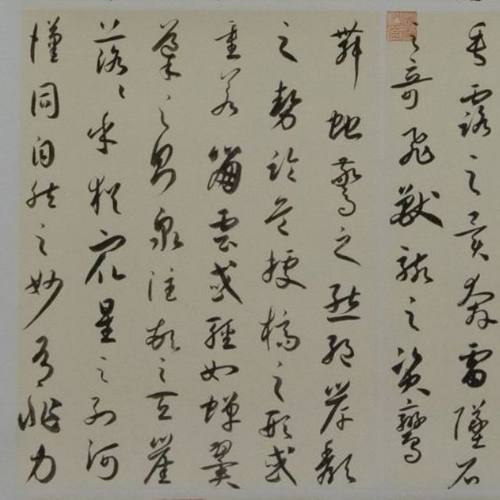 垂露之異奔雷墜石
之奇飛獸駭之資鸞
舞蛇驚之態絕岸頹
之勢臨危據槁之形或
重若崩雲或輕如蟬翼
導之則泉注頓之天崖
落落乎猶眾星之列河
漢同自然之妙有非力